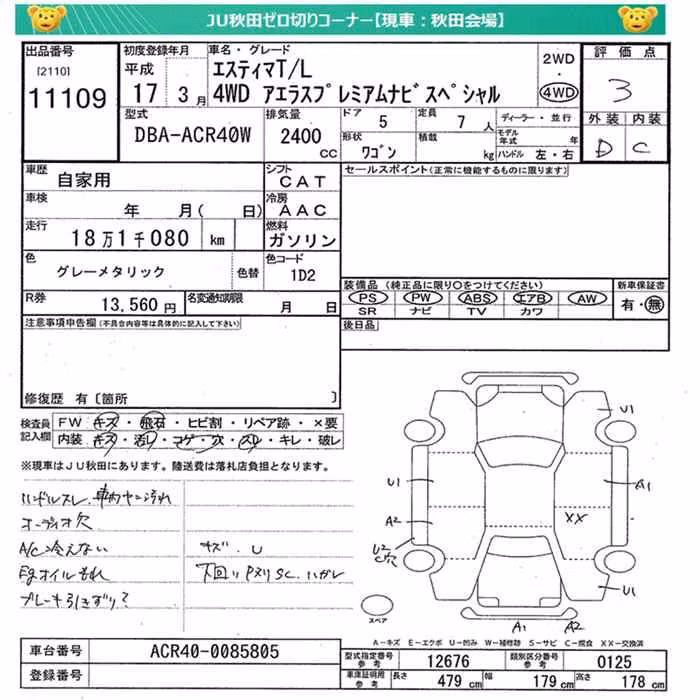 JU秋田ゼロ切りコーナー【現車：秋田会場】
出品番号 初度登録年月 車名・グレード 2WD 評価点
[2110] 平成 エスティマT/L
11109 17 3月 4WD アエラスプレミアムナビスペシャル 4WD 3
型式 排気量 ドア 5 定員 7人 ディーラー・並行 外装 内装
DBA-ACR40W 2400 CC 形状 ワゴン 積載 kg モデル年式 年 ハンドル 左・右 D C
車歴 自家用 シフト CAT セールスポイント(正常に機能するものに限ります)
車検 年 月( 日) 冷房 AAC
走行 18万1千080 km 燃料 ガソリン
色 グレーメタリック 色替 色コード 1D2
装備品(純正品に限り〇をつけてください) 新車保証書
R券 13,560円 名変通知期限 月 日 PS PW ABS エアB AW 有・無
SR ナビ TV カワ
注意事項申告欄(不具合内容等は具体的に記入して下さい) 後日品
修復歴 有〔箇所 〕
検査員記入欄 FW キズ・飛石・ヒビ割・リペア跡・×要
内装 キズ・汚レ・コゲ・穴・スレ・キレ・破レ
※現車はJU秋田にあります。陸送費は落札店負担となります。
ハンドルスレ、車内ヤニ汚れ
オーディオ欠
A/C冷えない キズ・U
Egオイルもれ 下回りPヌリSC、ハガレ
ブレーキ引きずり?
U1
U1 A1
A2 XX
U2
C穴
U1
スペア A1 A2
A－キズ E－エクボ U－凹み W－補修跡 S－サビ C－腐食 XX－交換済
車台番号 ACR40-0085805 型式指定番号 参考 12676 類別区分番号 参考 0125
登録番号 車庫証明用 参考 長さ 479 cm 幅 179 cm 高さ 178 cm